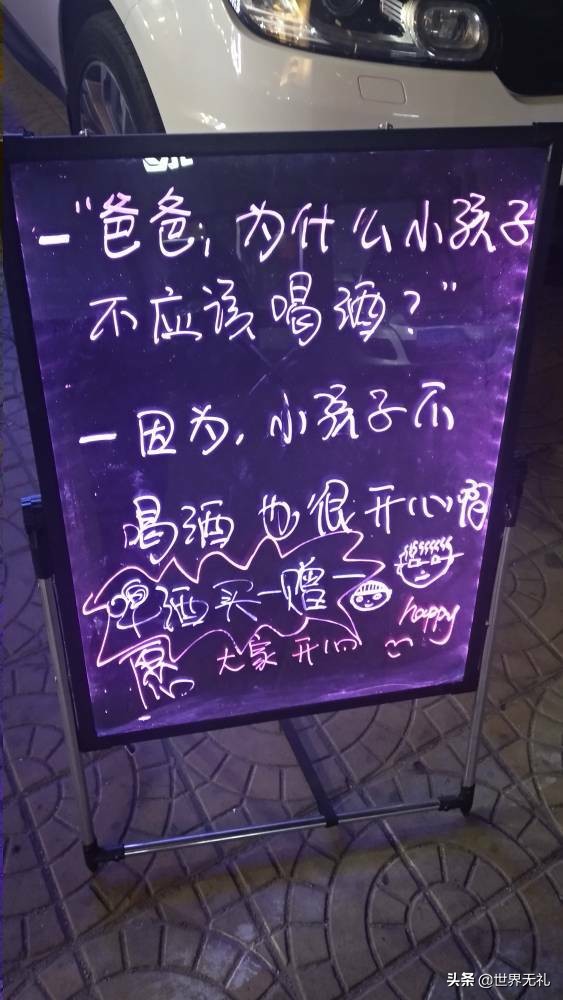 —"爸爸，为什么小孩子
不应该喝酒？"
—因为，小孩子不
喝酒也很开心啊
啤酒买一赠一
愿 大家开心
happy
头条 @世界无礼